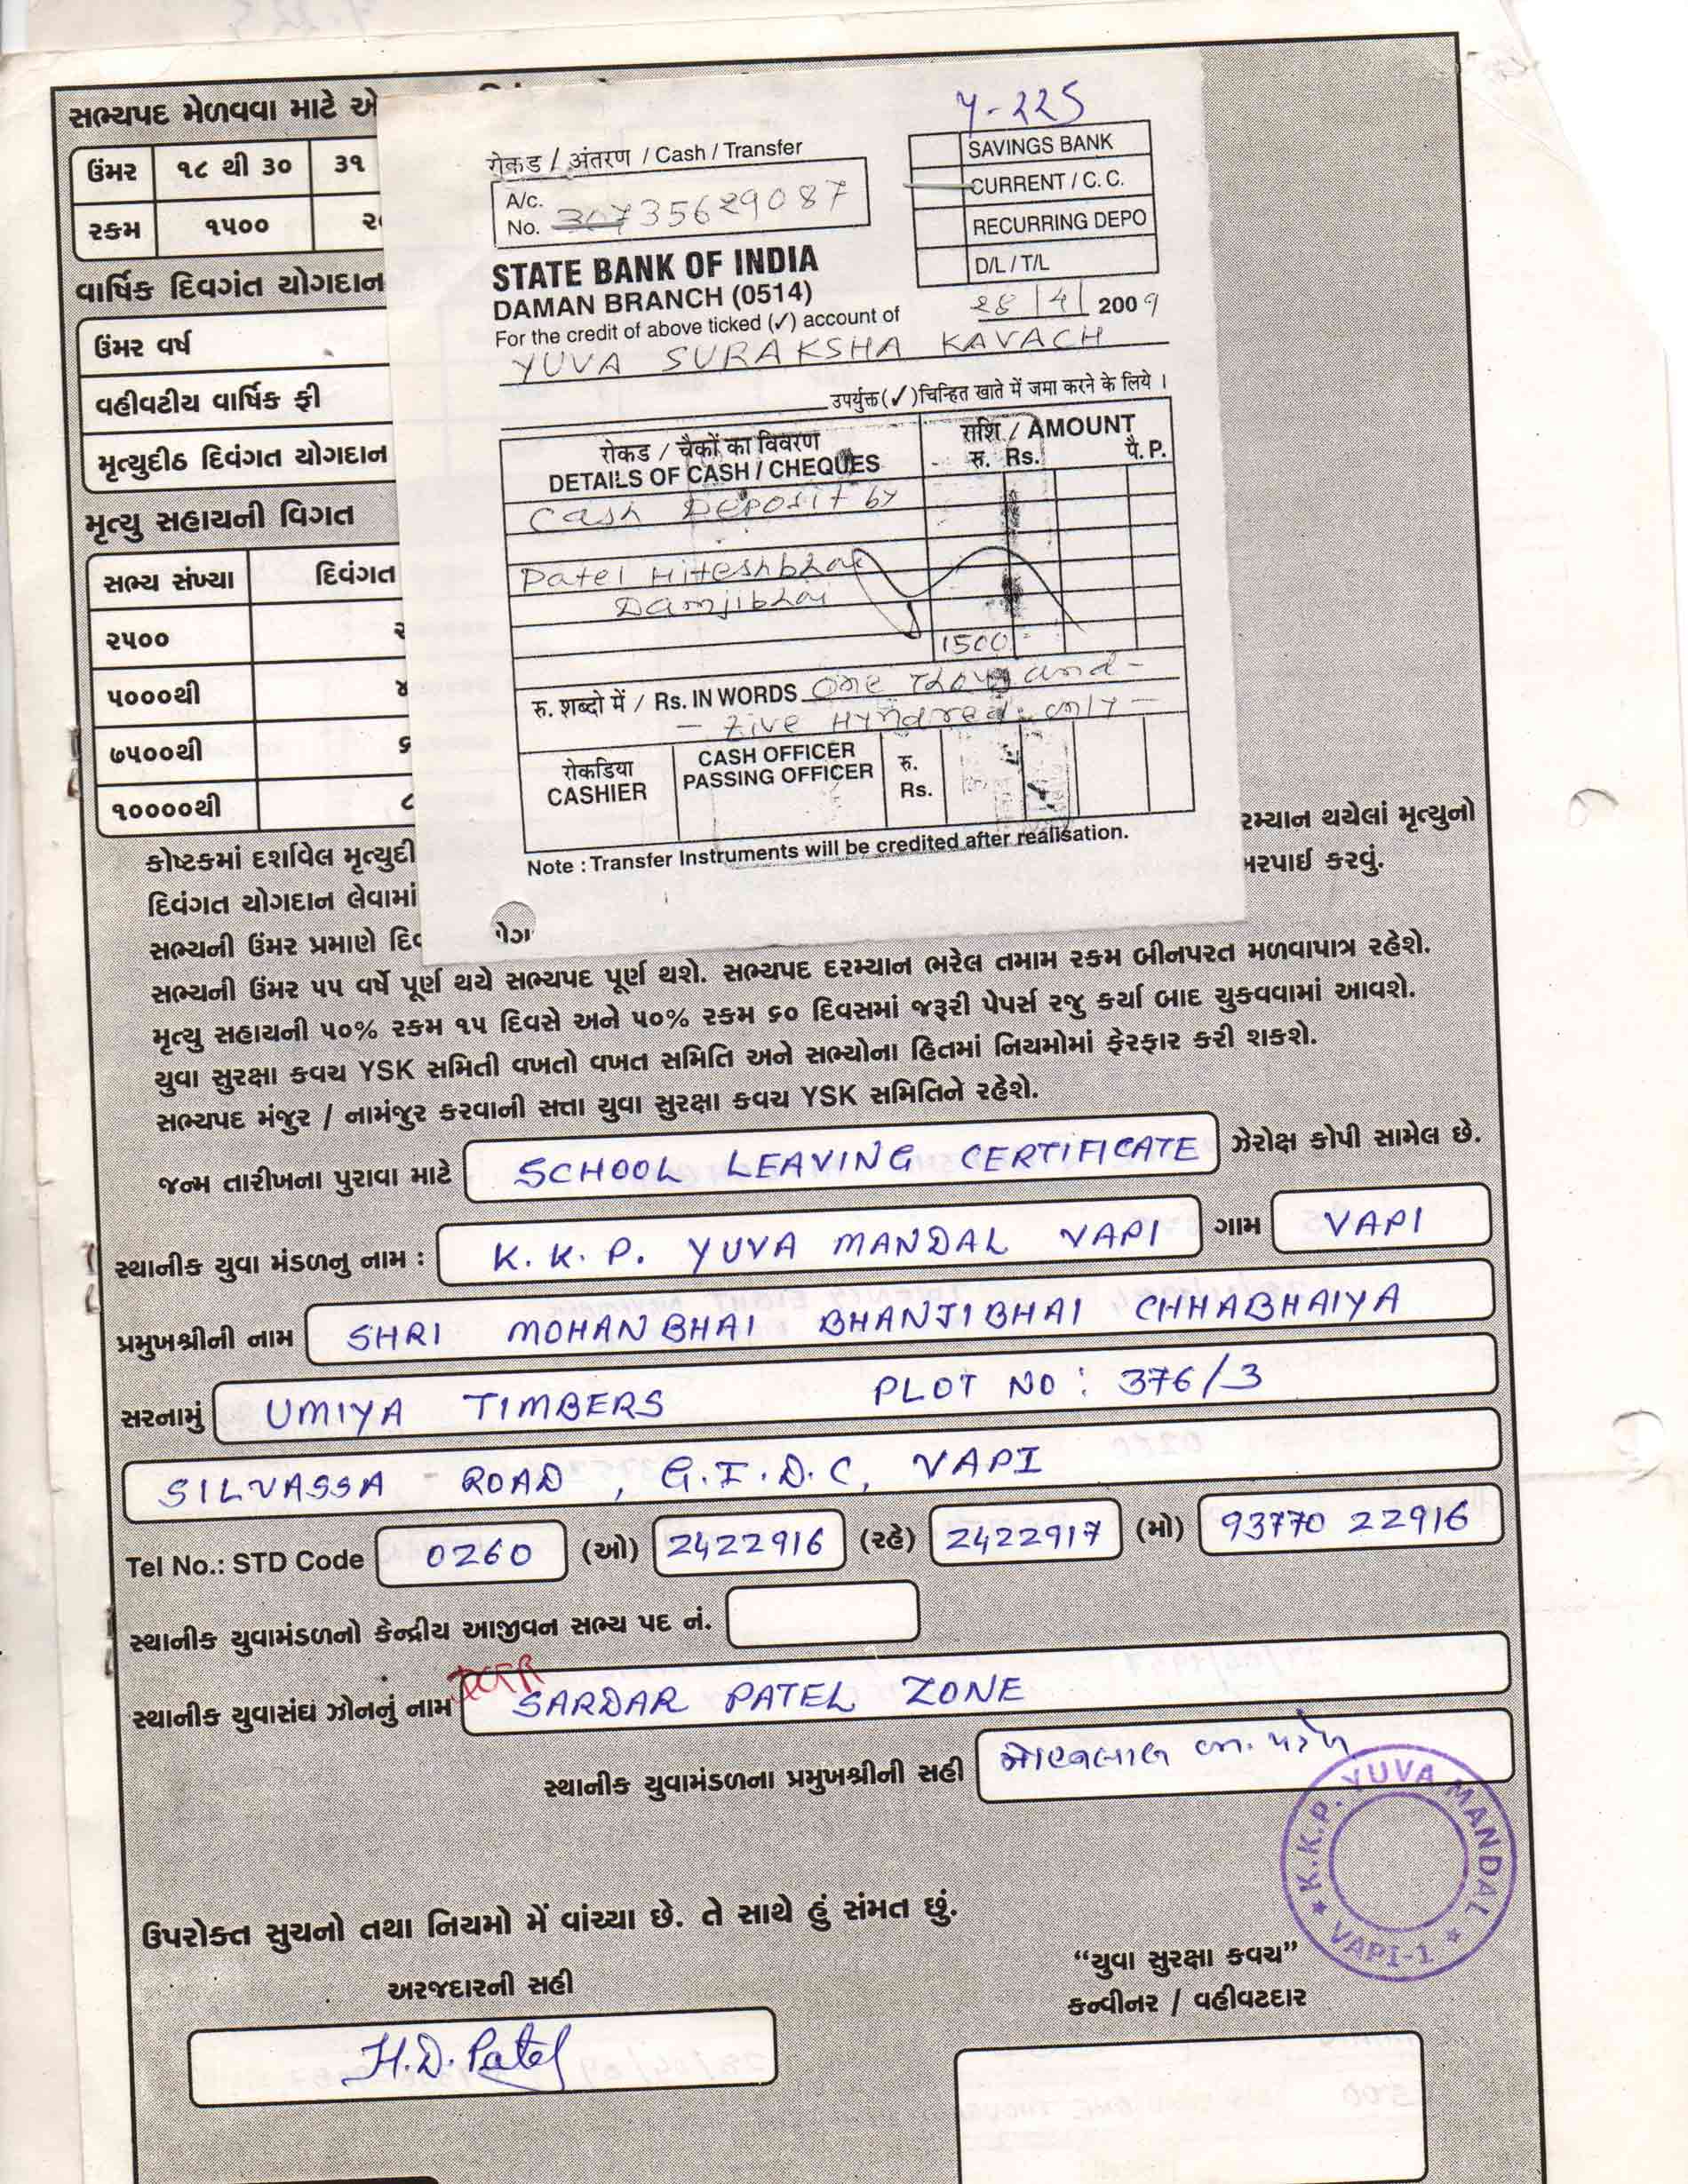 સભ્યપદ મેળવવા માટે
ઉંમર ૧૮ થી ૩૦ ૩૧
રકમ ૧૫૦૦
વાર્ષિક દિવગંત યોગદાન
ઉંમર વર્ષ
વહીવટીય વાર્ષિક ફી
મૃત્યુદીઠ દિવંગત યોગદાન
મૃત્યુ સહાયની વિગત
સભ્ય સંખ્યા દિવંગત
૨૫૦૦
૫૦૦૦થી
૭૫૦૦થી
૧૦૦૦૦થી
Y-225
रोकड / अंतरण / Cash / Transfer
A/c.
No. 30735629087
SAVINGS BANK
CURRENT / C. C.
RECURRING DEPO
D/L / T/L
STATE BANK OF INDIA
DAMAN BRANCH (0514)
28/4/2009
For the credit of above ticked (✓) account of
YUVA SURAKSHA KAVACH
उपर्युक्त (✓) चिन्हित खाते में जमा करने के लिये ।
रोकड / चैकों का विवरण
DETAILS OF CASH / CHEQUES
राशि / AMOUNT
रु. Rs. पै. P.
Cash Deposit by
Patel Hiteshbhai
Damjibhai
1500
रु. शब्दो में / Rs. IN WORDS One Thousand -
- Five Hundred only -
रोकडिया
CASHIER
CASH OFFICER
PASSING OFFICER
रु.
Rs.
Note : Transfer Instruments will be credited after realisation.
કોષ્ટકમાં દર્શાવેલ મૃત્યુદી રમ્યાન થયેલાં મૃત્યુનો
દિવંગત યોગદાન લેવામાં ભરપાઈ કરવું.
સભ્યની ઉંમર પ્રમાણે દિવ
સભ્યની ઉંમર ૫૫ વર્ષે પૂર્ણ થયે સભ્યપદ પૂર્ણ થશે. સભ્યપદ દરમ્યાન ભરેલ તમામ રકમ બીનપરત મળવાપાત્ર રહેશે.
મૃત્યુ સહાયની ૫૦% રકમ ૧૫ દિવસે અને ૫૦% રકમ ૬૦ દિવસમાં જરૂરી પેપર્સ રજુ કર્યા બાદ ચુકવવામાં આવશે.
યુવા સુરક્ષા કવચ YSK સમિતી વખતો વખત સમિતિ અને સભ્યોના હિતમાં નિયમોમાં ફેરફાર કરી શકશે.
સભ્યપદ મંજુર / નામંજુર કરવાની સત્તા યુવા સુરક્ષા કવચ YSK સમિતિને રહેશે.
જન્મ તારીખના પુરાવા માટે SCHOOL LEAVING CERTIFICATE ઝેરોક્ષ કોપી સામેલ છે.
સ્થાનીક યુવા મંડળનુ નામ : K. K. P. YUVA MANDAL VAPI ગામ VAPI
પ્રમુખશ્રીની નામ SHRI MOHANBHAI BHANJIBHAI CHHABHAIYA
સરનામું UMIYA TIMBERS PLOT NO : 376/3
SILVASSA ROAD, G.I.D.C, VAPI
Tel No.: STD Code 0260 (ઓ) 2422916 (રહે) 2422917 (મો) 93770 22916
સ્થાનીક યુવામંડળનો કેન્દ્રીય આજીવન સભ્ય પદ નં.
સ્થાનીક યુવાસંઘ ઝોનનું નામ SARDAR PATEL ZONE
સ્થાનીક યુવામંડળના પ્રમુખશ્રીની સહી
K.K.P. YUVA MANDAL
VAPI-1
ઉપરોક્ત સુચનો તથા નિયમો મેં વાંચ્યા છે. તે સાથે હું સંમત છું.
અરજદારની સહી
"યુવા સુરક્ષા કવચ"
કન્વીનર / વહીવટદાર
H.D. Patel